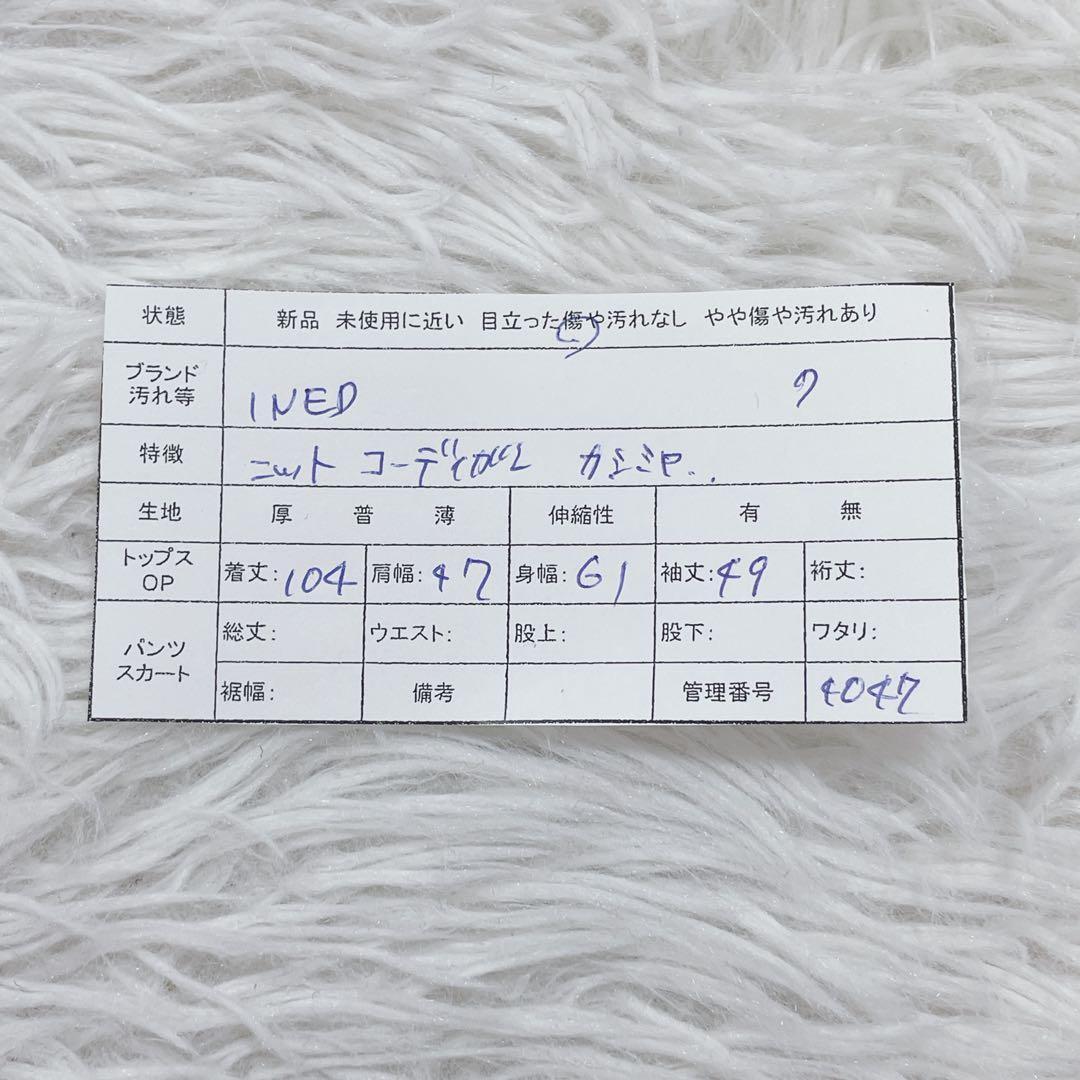 状態 新品 未使用に近い 目立った傷や汚れなし やや傷や汚れあり
ブランド
汚れ等 INED 9
特徴 ニット コーディガン カシミヤ..
生地 厚 普 薄 伸縮性 有 無
トップス
OP 着丈:104 肩幅:47 身幅:61 袖丈:49 裄丈:
パンツ
スカート 総丈: ウエスト: 股上: 股下: ワタリ:
裾幅: 備考 管理番号 4047